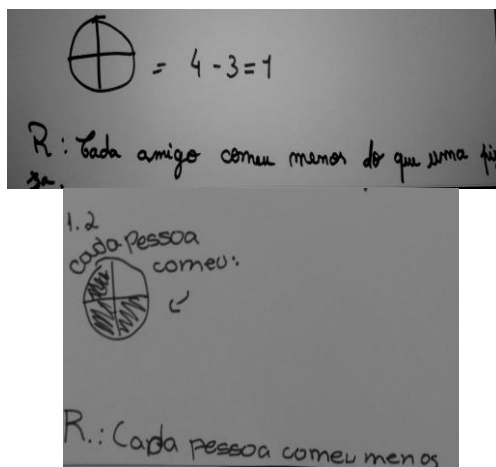 = 4 - 3 = 1
R: Cada amigo comeu menos do que uma piz
za.
1.2
cada pessoa
comeu:
R.: Cada pessoa comeu menos